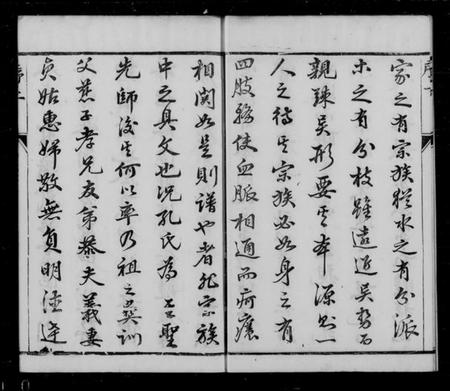 家之有宗族猶水之有分派
木之有分枝雖遠近異勢而
親疎異形要其本源則一
人之待其宗族必如身之有
四肢務使血脈相通而疴癢
相関如是則譜也者非宗族
中之具文也況孔氏為至聖
先師後其何以率乃祖之彝訓
父慈子孝兄友弟恭夫義妻
貞姑惠婦敬無負明
序
序二